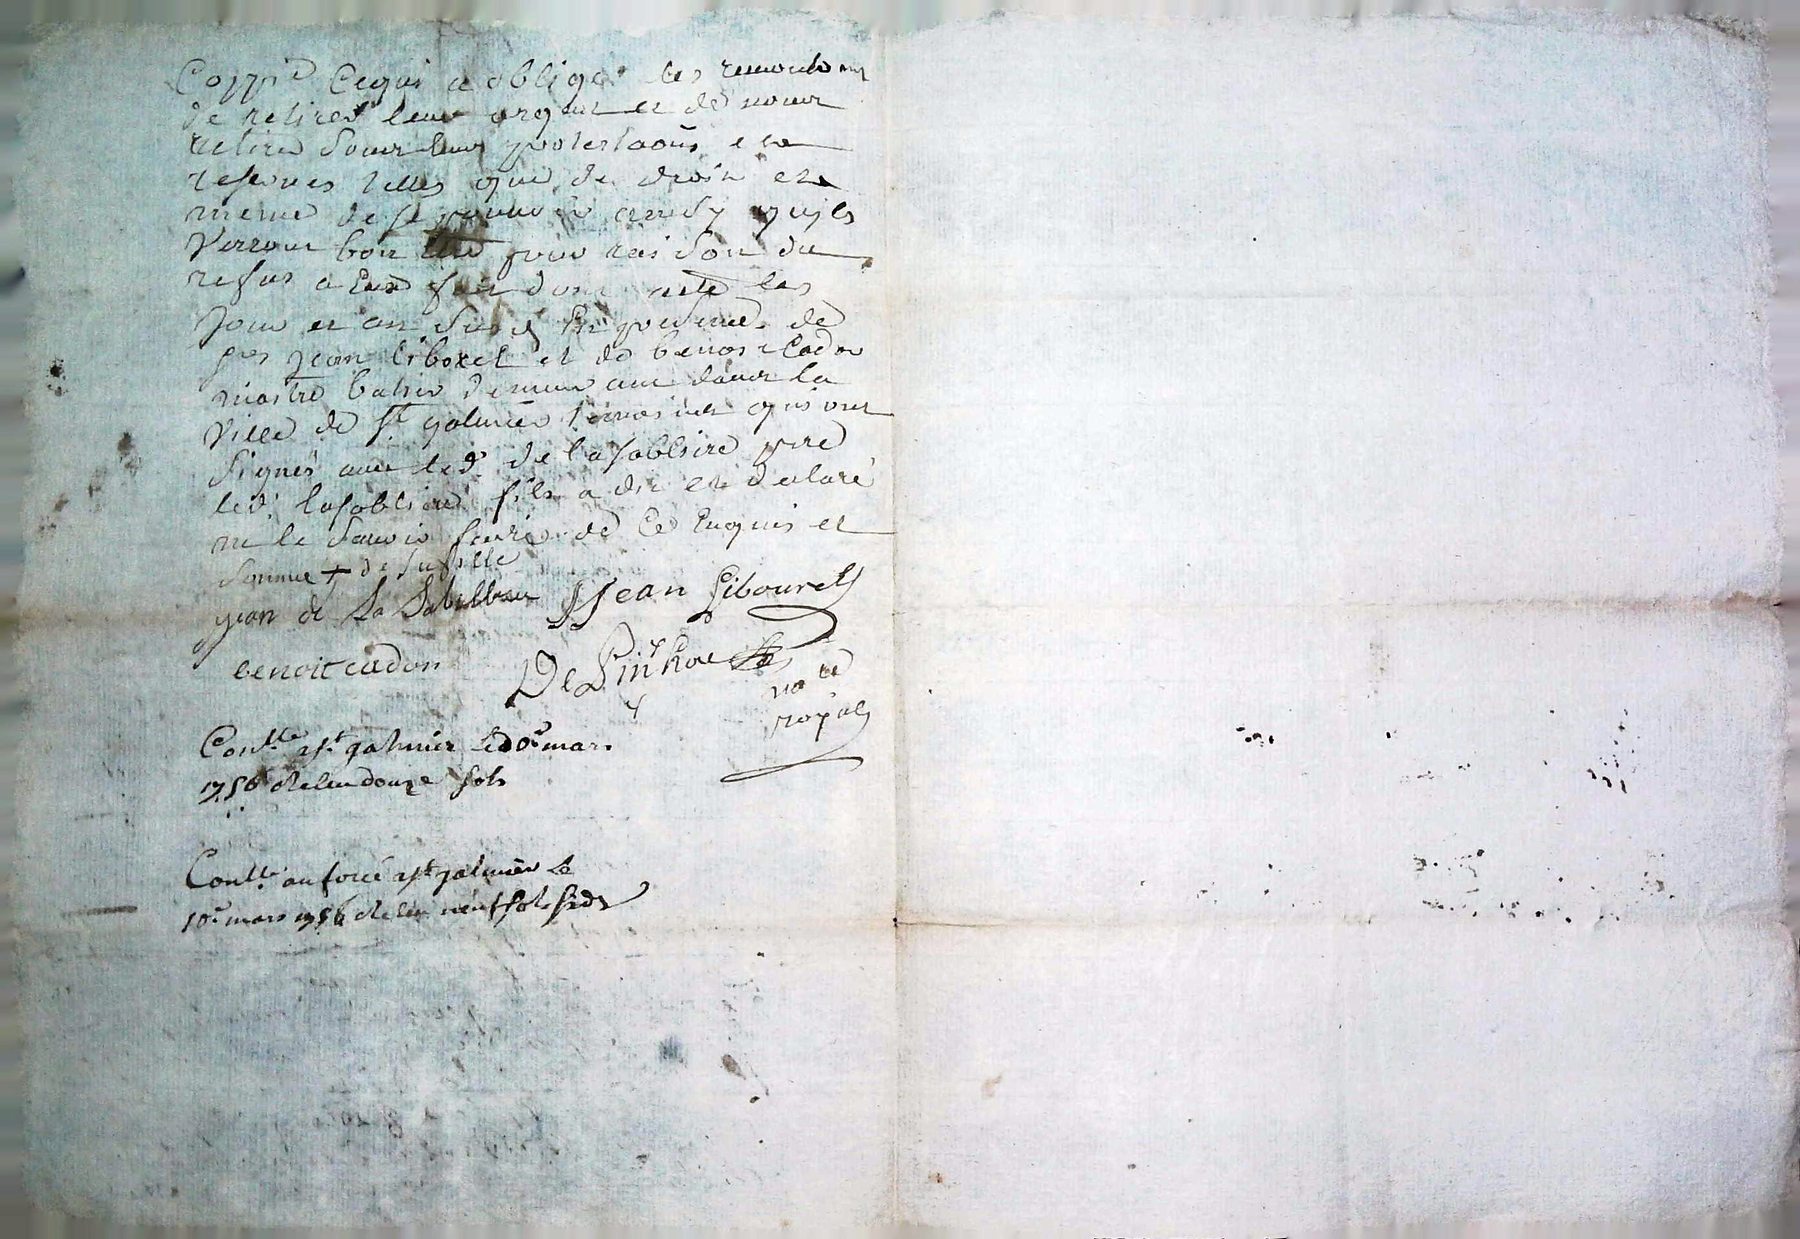 Coppie Cequi a obligé les
de retirer leur argent et de nous
retirer sour leurs protestaōns et
reserves telles que de droit et
meme de se pourvoir ainsy quils
verront bon etre pour raison du
refus a eux fait dont acte les
jour et an susd En presence de
jean liborel et de benoit Cadon
maitre demeurant dans la
ville de St galmier temoins qui ont
signés avec led. de lasabliere pere
led. lasabliere fils a dit et declaré
ne le savoir faire de ce Enquis et
sommé + de sufille
jean de La Jean Libourel
benoit cadon De
no re
royal
Contlle a St galmier le 10e mars
1756 Receu douze sols
Contlle au forcé a St galmier le
10e mars 1756 Receu neuf sols six drs